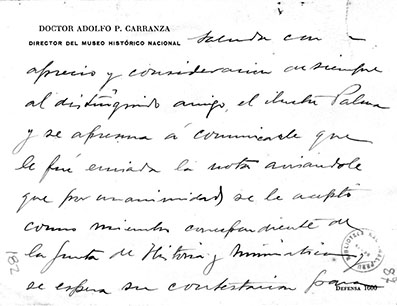 DOCTOR ADOLFO P. CARRANZA
DIRECTOR DEL MUSEO HISTÓRICO NACIONAL saluda con
aprecio y consideración de siempre
al distinguido amigo, el ilustre Palma
y se apresura á comunicarle que
le fué enviada la nota avisándole
que por unanimidad se le aceptó
como miembro correspondiente de
la Junta de Historia y Numismática y
se espera su contestación para
DEFENSA 1600
182
87